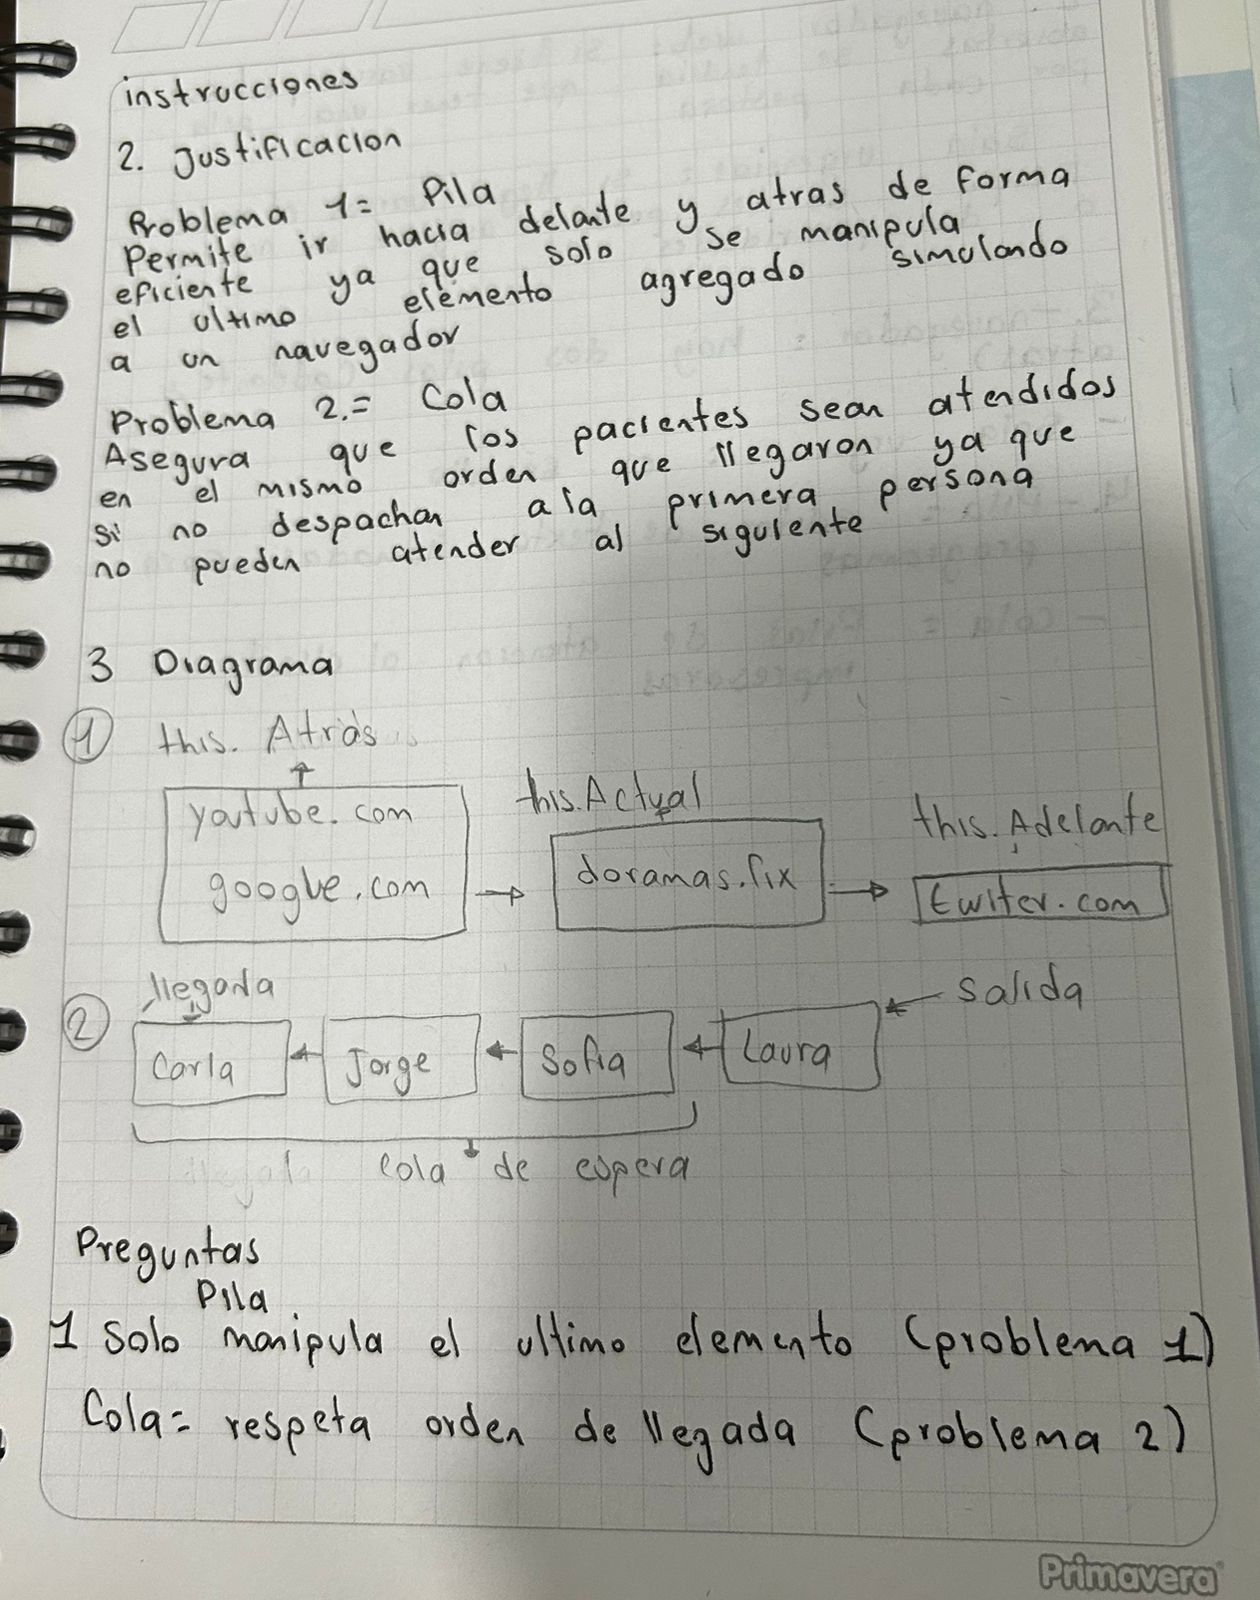 instrucciones
2. Justificacion
Problema 1= Pila
Permite ir hacia delante y atras de forma
eficiente ya que solo se manipula
el ultimo elemento agregado simulando
a un navegador
Problema 2.= Cola
Asegura que los pacientes sean atendidos
en el mismo orden que llegaron ya que
si no despachan a la primera persona
no pueden atender al siguiente
3 Diagrama
1 this. Atrás
youtube.com
google.com
this.Actual
doramas.flix
this.Adelante
twiter.com
2 llegada
Carla
Jorge
Sofia
Laura
Salida
Cola de espera
Preguntas
Pila
1 Solo manipula el ultimo elemento (problema 1)
Cola= respeta orden de llegada (problema 2)
Primavera